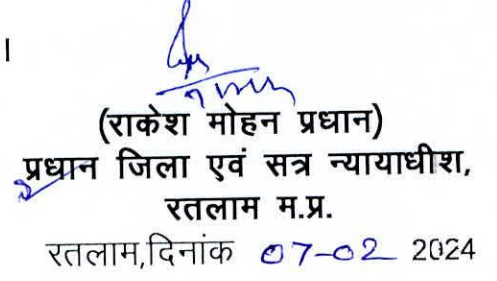 ।
(राकेश मोहन प्रधान)
प्रधान जिला एवं सत्र न्यायाधीश,
रतलाम म.प्र.
रतलाम,दिनांक 07-02 2024